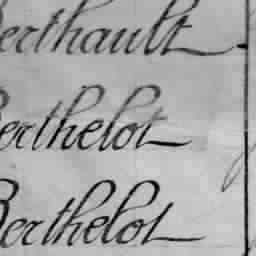 Berthault
Berthelot
Berthelot